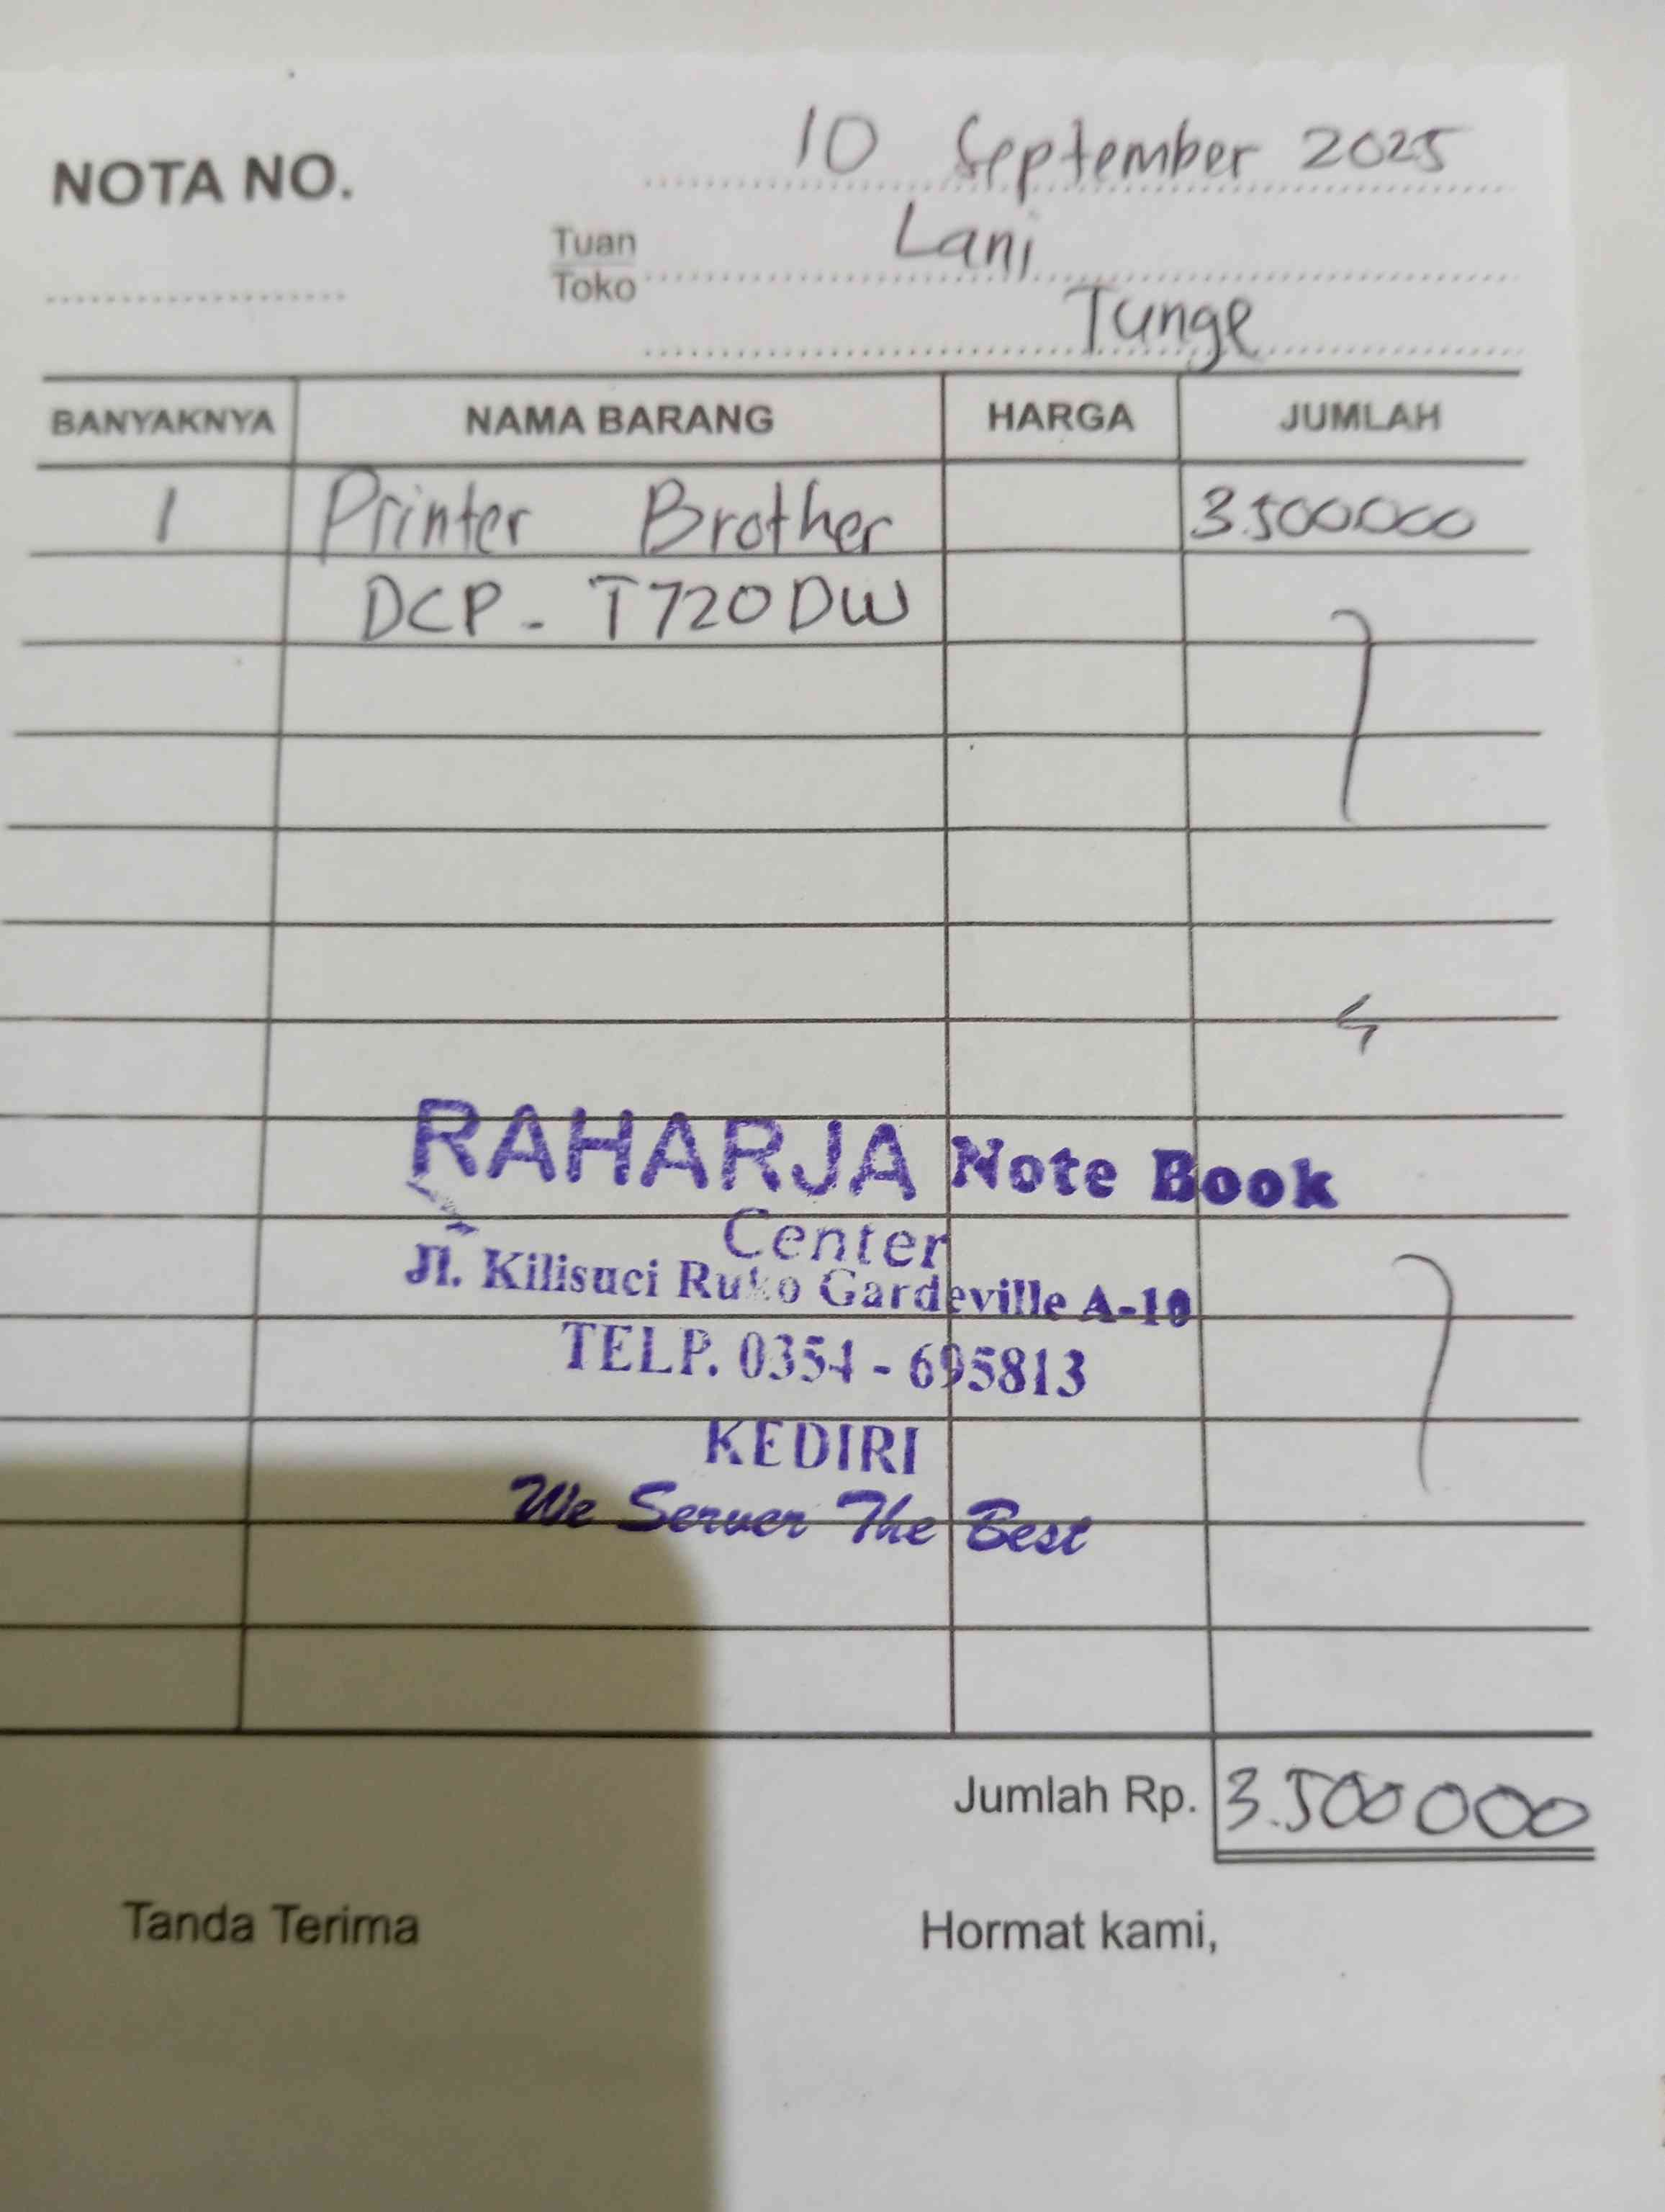 10 September 2025
NOTA NO.
Tuan
Lani
Toko
Tunge
BANYAKNYA NAMA BARANG HARGA JUMLAH
1 Printer Brother 3.500.000
DCP - T720DW
RAHARJA Note Book
Center
Jl. Kilisuci Ruko Gardeville A-10
TELP. 0354 - 695813
KEDIRI
We Server The Best
Jumlah Rp. 3.500 000
Tanda Terima Hormat kami,